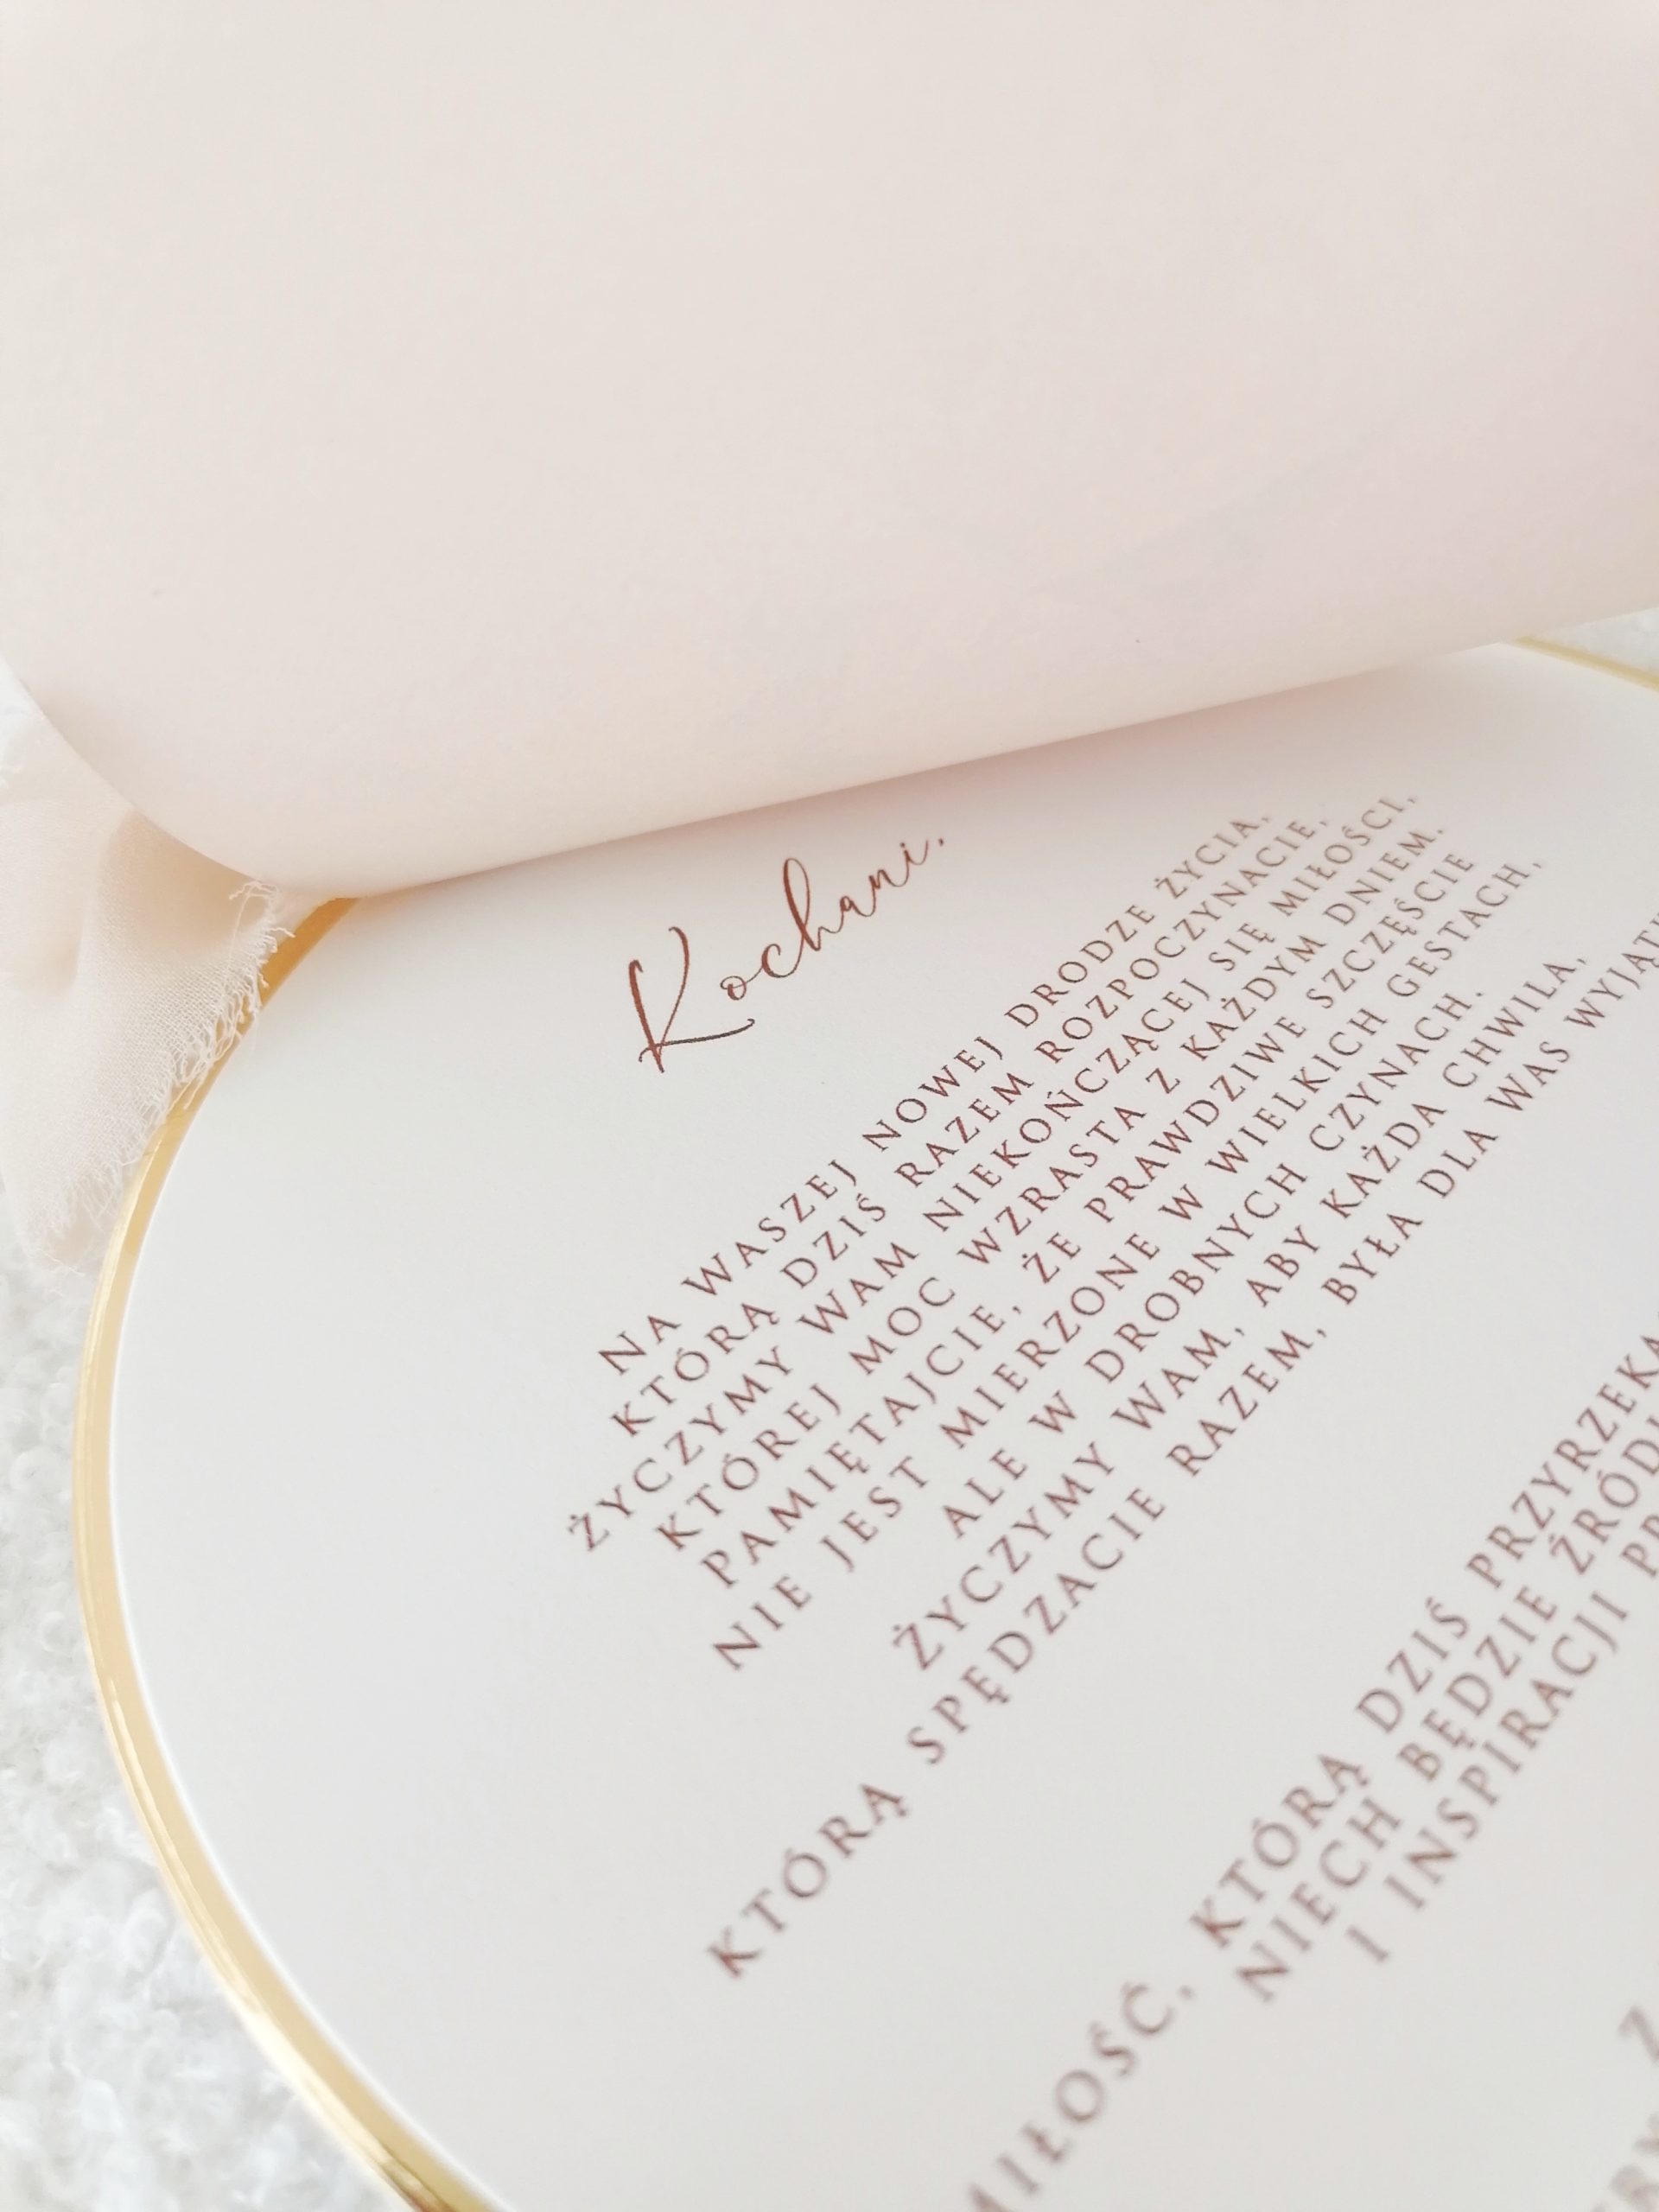 Kochani,
NA WASZEJ NOWEJ DRODZE ŻYCIA,
KTÓRĄ DZIŚ RAZEM ROZPOCZYNACIE,
ŻYCZYMY WAM NIEKOŃCZĄCEJ SIĘ MIŁOŚCI,
KTÓREJ MOC WZRASTA Z KAŻDYM DNIEM.
PAMIĘTAJCIE, ŻE PRAWDZIWE SZCZĘŚCIE
NIE JEST MIERZONE W WIELKICH GESTACH,
ALE W DROBNYCH CZYNACH.
ŻYCZYMY WAM, ABY KAŻDA CHWILA,
KTÓRĄ SPĘDZACIE RAZEM, BYŁA DLA WAS
MIŁOŚĆ, KTÓRĄ DZIŚ
NIECH BĘDZIE
I INSPIRACJI